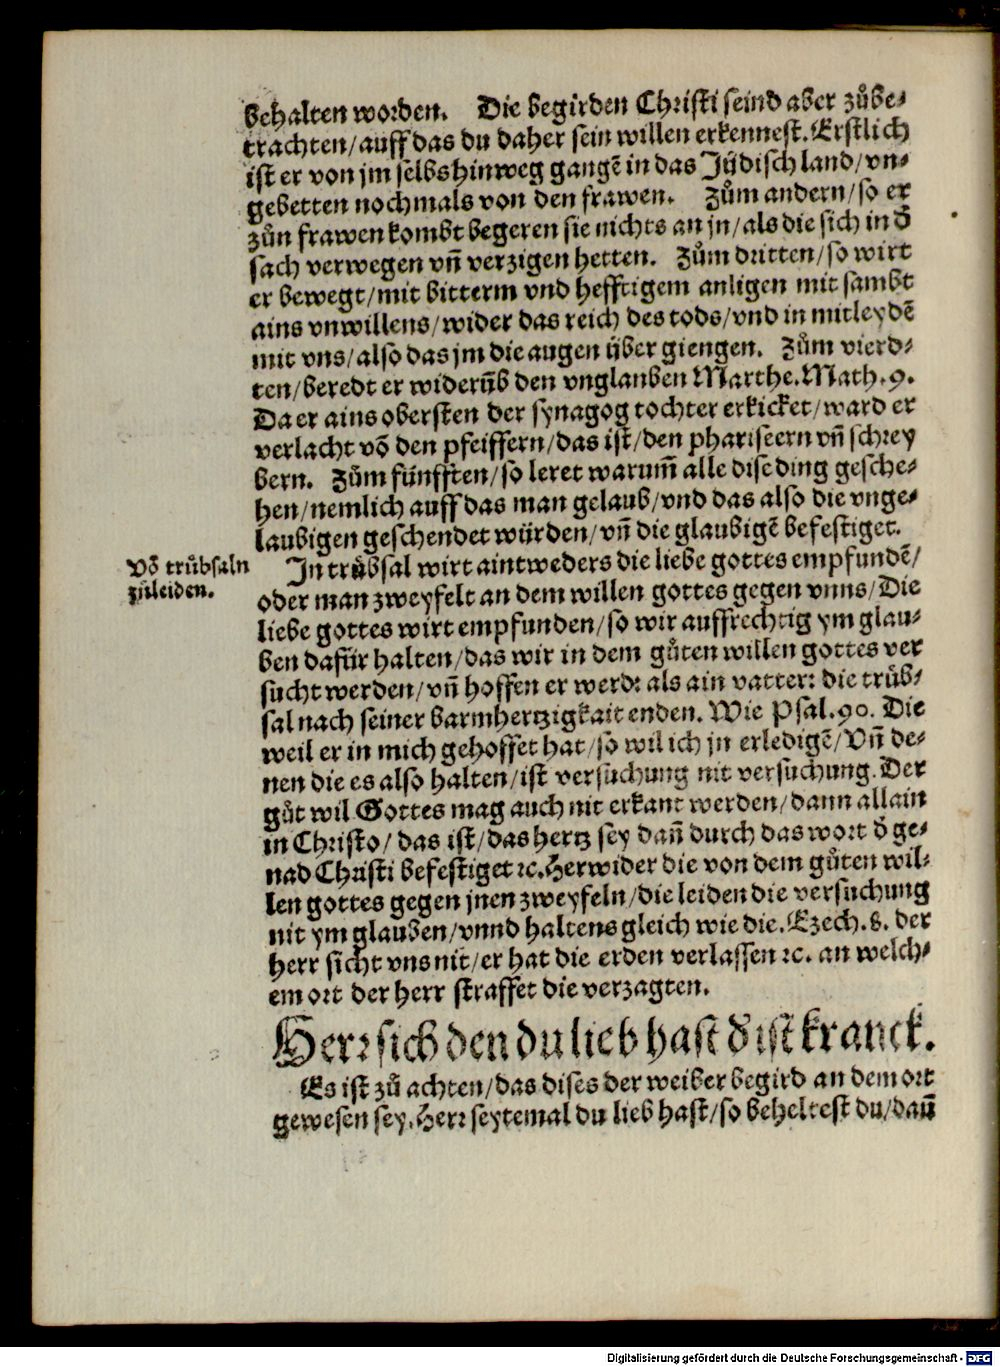 behalten worden. Die begirden Christi seind aber zůbe-
trachten/auff das du daher sein willen erkennest. Erstlich
ist er von jm selbs hinweg gangẽ in das Jüdisch land/vn-
gebetten nochmals von den frawen. Zům andern/so er
zůn frawen kombt begeren sie nichts an jn/als die sich in d̃
sach verwegen vñ verzigen hetten. Zům dritten/so wirt
er bewegt/mit bitterm vnd hefftigem anligen mit sambt
ains vnwillens/wider das reich des tods/vnd in mitleydẽ
mit vns/also das jm die augen über giengen. Zům vierd-
ten/beredt er widerũb den vnglauben Marthe. Math. 9.
Da er ains obersten der synagog tochter erkicket/ward er
verlacht võ den pfeiffern/das ist/den phariseern vñ schrey
bern. Zům fünfften/so leret warum̃ alle dise ding gesche-
hen/nemlich auff das man gelaub/vnd das also die vnge-
laubigen geschendet würden/vñ die glaubigẽ befestiget.
Võ trůbsaln
zůleiden.
In trůbsal wirt aintweders die liebe gottes empfundẽ/
oder man zweyfelt an dem willen gottes gegen vnns/Die
liebe gottes wirt empfunden/so wir auffrechtig ym glau-
ben dafür halten/das wir in dem gůten willen gottes ver
sucht werden/vñ hoffen er werde als ain vatter: die trůb-
sal nach seiner barmhertzigkait enden. Wie Psal. 90. Die
weil er in mich gehoffet hat/so wil ich jn erledigẽ/Vñ de-
nen die es also halten/ist versuchung nit versuchung. Der
gůt wil Gottes mag auch nit erkant werden/dann allain
in Christo/das ist/das hertz sey dañ durch das wort d̃ ge-
nad Christi befestiget ꝛc. Herwider die von dem gůten wil-
len gottes gegen jnen zweyfeln/die leiden die versuchung
nit ym glauben/vnnd haltens gleich wie die. Ezech. 8. der
herr sicht vns nit/er hat die erden verlassen ꝛc. an welch-
em ort der herr straffet die verzagten.
Herr sich den du lieb hast d̃ ist kranck.
Es ist zů achten/das dises der weiber begird an dem ort
gewesen sey. Herr seytemal du lieb hast/so beheltest du/dañ
Digitalisierung gefördert durch die Deutsche Forschungsgemeinschaft - DFG